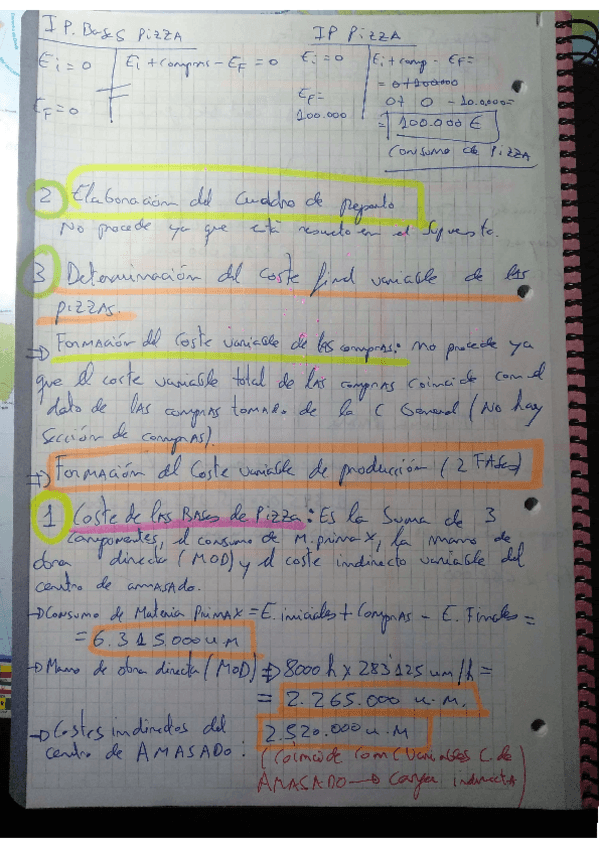 I P. Bases Pizza
Ei = 0
Ei + compras - EF = 0
EF = 0
IP Pizza
Ei = 0
EF =
100.000
Ei + comp - EF =
= 0+100000
0+ 0 - 10.0.000=
= 100.000 €
Consumo de Pizza
2 Elaboración del Cuadro de Reparto
No procede ya que está resuelto en el Supuesto.
3 Determinación del coste final variable de las
pizzas.
⇒ Formación del Coste variable de las compras: no procede ya
que el coste variable total de las compras coincide con el
dato de las compras tomado de la C General (No hay
Sección de compras).
⇒ Formación del Coste variable de producción (2 Fases)
1 Coste de las Bases de Pizza: Es la Suma de 3
componentes, el consumo de M.prima X, la mano de
obra directa (MOD) y el coste indirecto variable del
centro de amasado.
→ Consumo de Materia Prima X = E. iniciales + Compras - E. Finales =
= 6.315.000 u.m
→ Mano de obra directa (MOD) ⇒ 8000 h x 283'125 um/h =
= 2.265.000 u.m.
→ Costes indirectos del
centro de AMASADO:
2.520.000 u.m
(Coincide con C Variables C. de
AMASADO → Cargas indirecta)